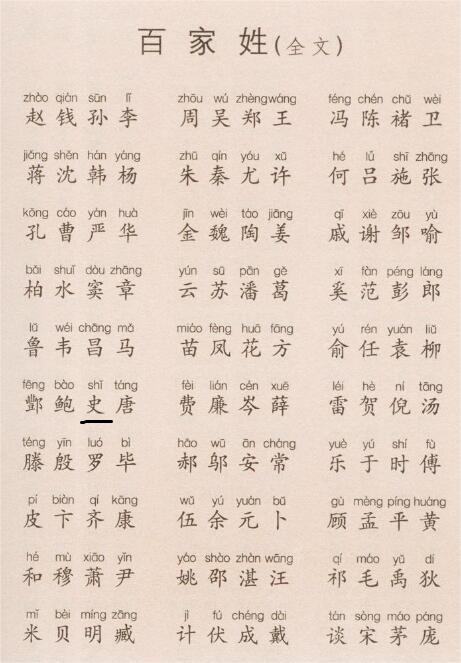 百家姓(全文)
zhào qián sūn lǐ zhōu wú zhèng wáng féng chén chǔ wèi
赵钱孙李 周吴郑王 冯陈褚卫
jiǎng shěn hán yáng zhū qín yóu xǔ hé lǚ shī zhāng
蒋沈韩杨 朱秦尤许 何吕施张
kǒng cáo yán huà jīn wèi táo jiāng qī xiè zōu yù
孔曹严华 金魏陶姜 戚谢邹喻
bǎi shuǐ dòu zhāng yún sū pān gě xī fàn péng láng
柏水窦章 云苏潘葛 奚范彭郎
lǔ wéi chāng mǎ miáo fèng huā fāng yú rén yuán liǔ
鲁韦昌马 苗凤花方 俞任袁柳
fēng bào shǐ táng fèi lián cén xuē léi hè ní tāng
酆鲍史唐 费廉岑薛 雷贺倪汤
téng yīn luó bì hǎo wū ān cháng yuè yú shí fù
滕殷罗毕 郝邬安常 乐于时傅
pí biàn qí kāng wǔ yú yuán bǔ gù mèng píng huáng
皮卞齐康 伍余元卜 顾孟平黄
hé mù xiāo yǐn yáo shào zhàn wāng qí máo yǔ dí
和穆萧尹 姚邵湛汪 祁毛禹狄
mǐ bèi míng zāng jì fú chéng dài tán sòng máo páng
米贝明臧 计伏成戴 谈宋茅庞